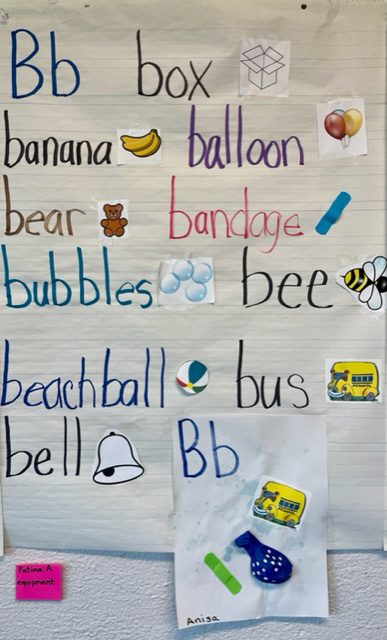 Bb box
banana balloon
bear bandage
bubbles bee
beachball bus
bell
Bb
Anisa
Fatima A
equipment